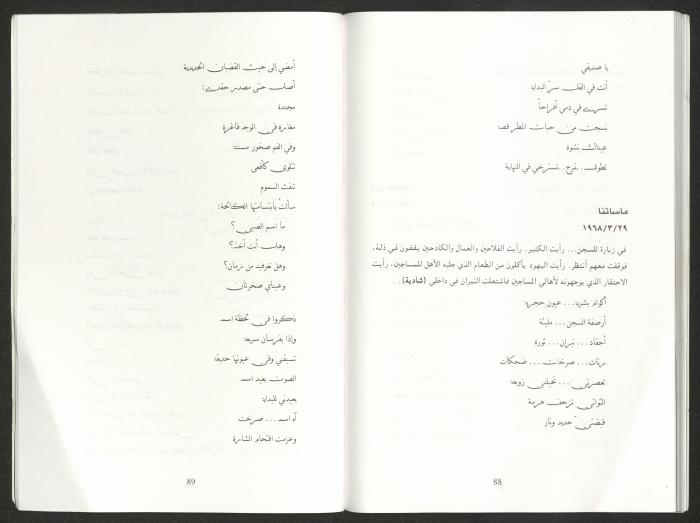 يا صديقي
أنت في القلب سرّ البداية
تسهرين في دمي أفراحاً
نسجت من حبات المطر قصة
عيناك نشوة
تطوف..تفرح..تسترخي في النهاية
مأساتنا
١٩٦٨/٣/٢٩
في زيارة للسجن... رأيت الكثير. رأيت الفلاحين والعمال والكادحين يقفون في ذلة،
فوقفت معهم أنتظر. رأيت اليهود يأكلون من الطعام الذي جلبه الأهل للمساجين، رأيت
الاحتقار الذي يوجهونه لأهالي المساجين فاشتعلت النيران في داخلي (شادية).
أكوام بشرية... عيون حجرية
أرصفة السجن... مليئة
أحقاد... نيران... ثورة
بريئات... صرخات... ضحكات
تعصرني... تحيلني زوبعة
الثواني تزحف هرمة
قبضتي حديد ونار
88
أمضي إلى حيث القضبان الحديدية
أصل حتى مصدر حقدي:
مجندة
مغامرة في الوجد فاغرة
وفي الفم صخور مسننة
تتلوى كأفعى
تنفث السموم
سألت بابتسامتها الكالحة:
ما اسم الصبي؟
وهل أنت أخته؟
وهل تعرفيه من زمان؟
وعيناي صخرتان
ذكروا في لحظة اسمه
وإذا بفرسان سريعة
تسبقني وفي عيونها حديقة
الصوت يعيد اسمه
يعيدني للبداية
آه اسمه... صرخت
وعزمت اقتحام الشاهرة
89